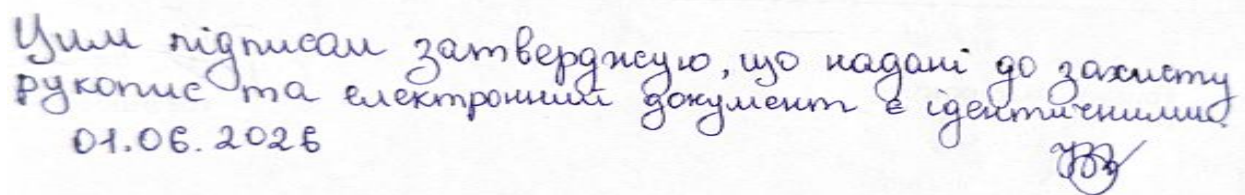 Цим підписом затверджую, що надані до захисту
рукопис та електронний документ є ідентичними.
01.06.2026